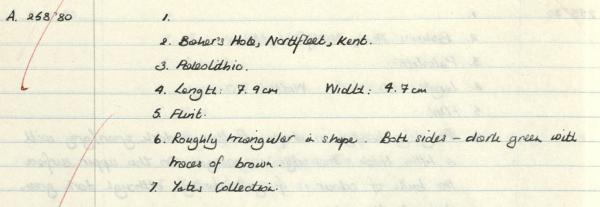 A. 258/80 1.
2. Baker's Hole, Northfleet, Kent.
3. Paleolithic.
4. Length: 7.9cm Width: 4.7cm
5. Flint.
6. Roughly triangular in shape. Both sides - dark green with
traces of brown.
7. Yates Collection.